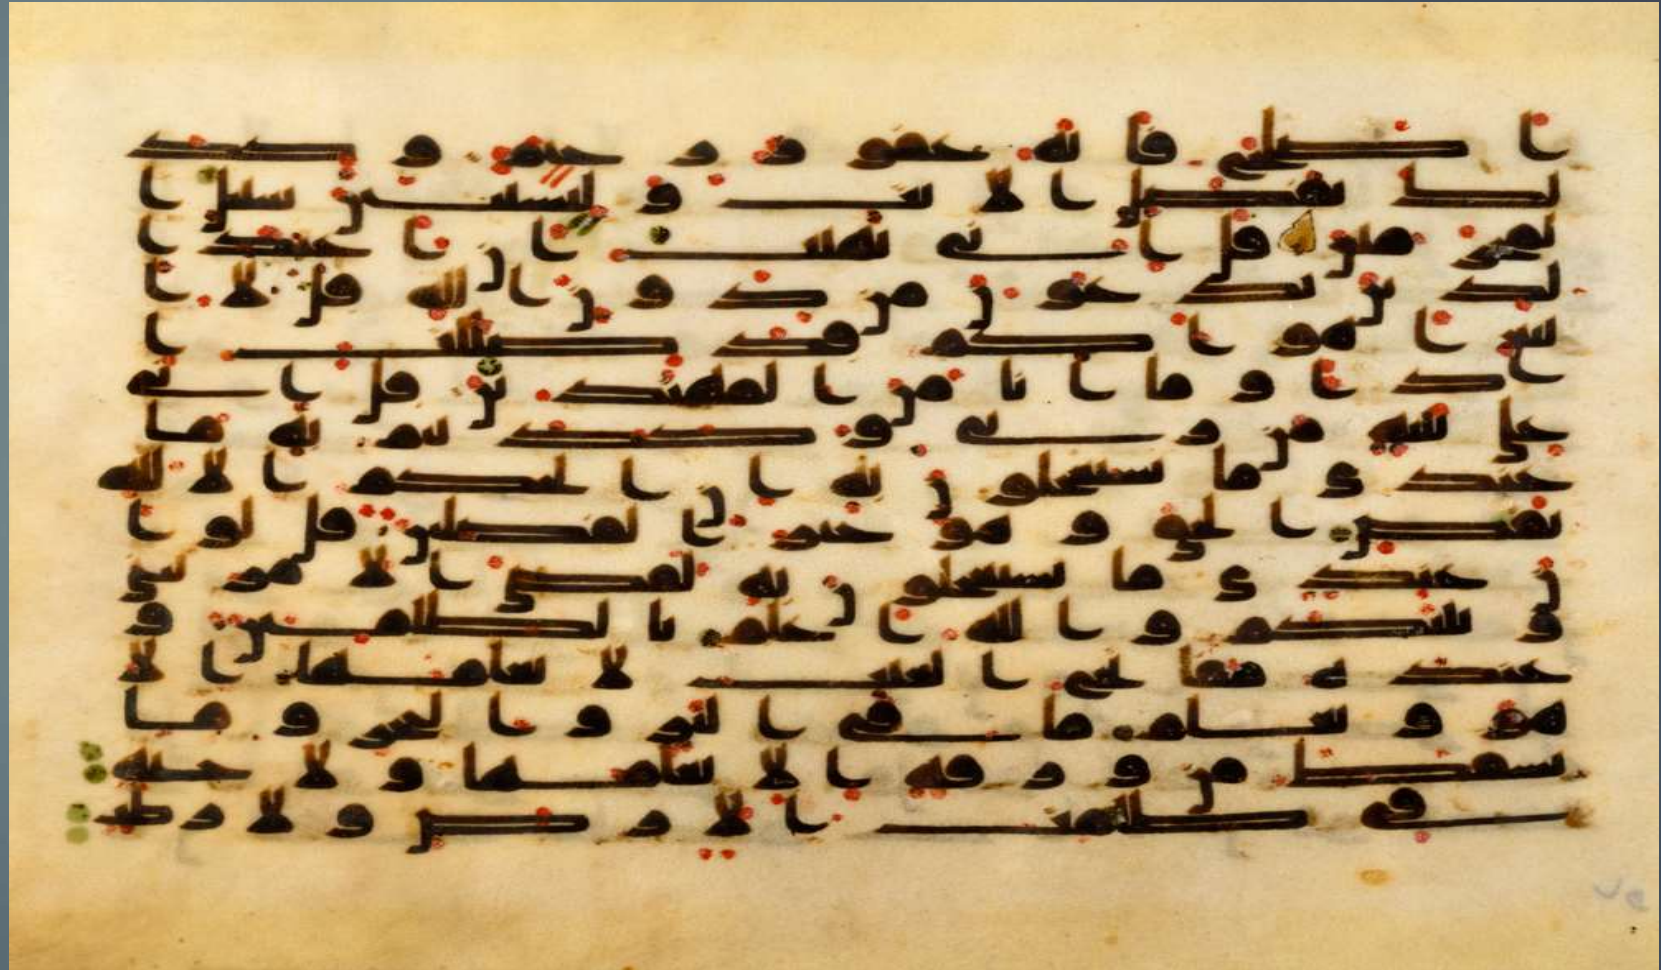 ا صلح فانه غفور رحيم وكذ
لك نفصل الايت ولتستبين سبيل ا
لمجرمين قل اني نهيت ان اعبد ا
لذين تدعون من دون الله قل لا ا
تبع اهواكم قد ضللت ا
ذا وما انا من المهتدين قل اني
على بينه من ربي وكذبتم به ما
عندي ما تستعجلون به ان الحكم الا لله
يقص الحق وهو خير الفصلين قل لو ا
ن عندي ما تستعجلون به لقضي الامر بيني
وبينكم والله اعلم بالظلمين و
عنده مفتح الغيب لا يعلمها الا
هو ويعلم ما في البر والبحر وما
تسقط من ورقه الا يعلمها ولا حبه
في ظلمت الارض ولا رطب